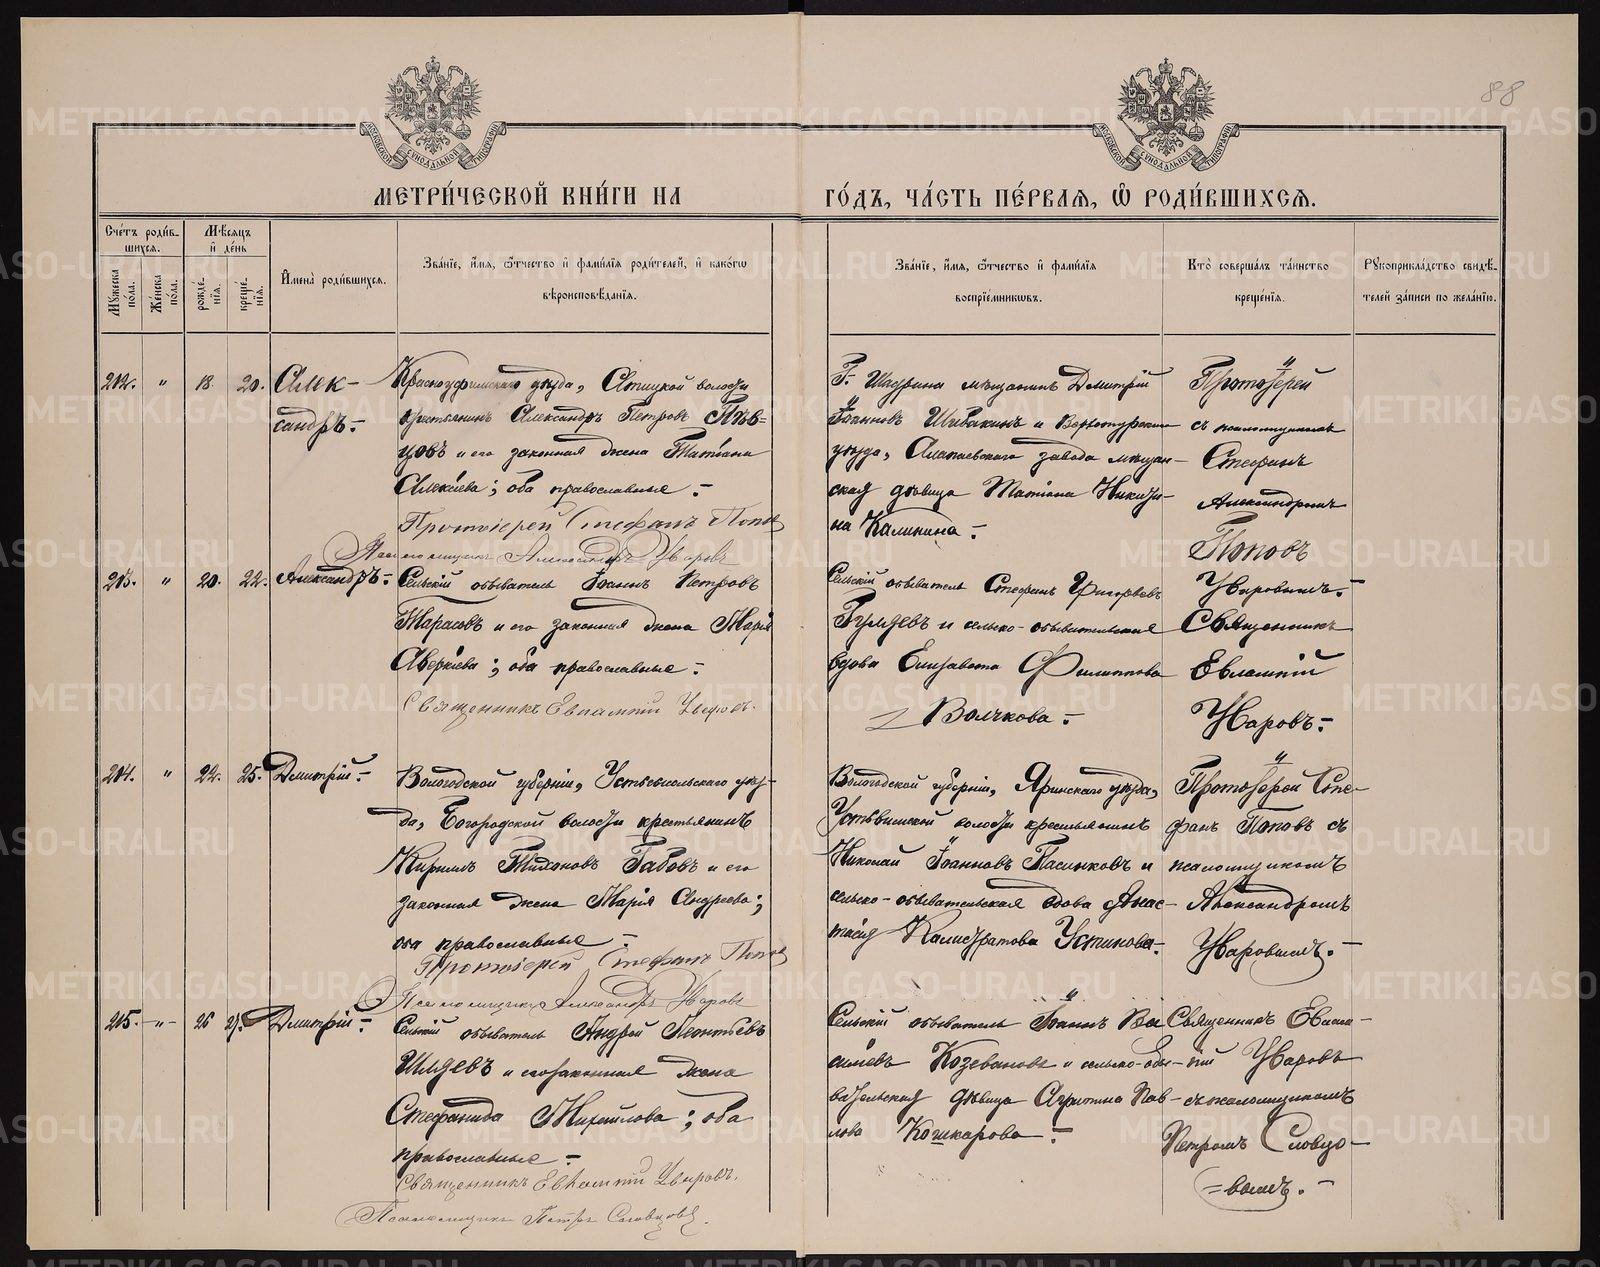 88
МОСКОВСКОЙ СѴНОДАЛЬНОЙ ТИПОГРАФІИ
МОСКОВСКОЙ СѴНОДАЛЬНОЙ ТИПОГРАФІИ
МЕТРИ́ЧЕСКОЙ КНИ́ГИ НА
ГО́ДЪ, ЧА́СТЬ ПЕ́РВАѦ, Ѡ҆ РОДИ́ВШИХСѦ.
Счетъ роди́в-
шихсѧ.
Мѣсѧцъ
и҆ де́нь
Мꙋжеска пола.
Же́нска пола.
рожде́-
нїѧ.
креще́-
нїѧ.
И҆мена̀ роди́вшихсѧ.
Зва́нїе, и҆́мѧ, ѻ҆́тчество и҆ фами́лїѧ роди́телей, и҆ како́гѡ
вѣроисповѣ́данїѧ.
Зва́нїе, и҆́мѧ, ѻ҆́тчество и҆ фами́лїѧ
воспрїе́мникѡвъ.
Кто̀ соверша́лъ та́инство
креще́нїѧ.
Рꙋкоприкла́дство свидѣ́-
телей за́писи по жела́нїю.
202. " 18. 20. Алек-
сандръ.-
Красноуфимскаго уѣзда, Ачицкой волости
крестьянинъ Александръ Петровъ Пѣв=
цовъ и его законная жена Татіана
Алексіева; оба православные.-
Протоіерей Стефанъ Попов
Псаломщикъ Александръ Уваровъ
Г. Шадрина мѣщанинъ Димитрій
Іоанновъ Шибакинъ и Верхотурскаго
уѣзда, Алапаевскаго завода мѣщан-
ская дѣвица Татіана Никити-
на Калинина.-
Протоіерей
съ псаломщикомъ
Стефанъ
Александромъ
Поповъ
Уваровымъ.-
203. " 20. 22. Александръ.-
Сельскій обыватель Іоаннъ Петровъ
Тарасовъ и его законная жена Марія
Аверкіева; оба православные.-
Священникъ Евлампій Уваровъ.
Сельскій обыватель Стефанъ Григорьевъ
Гуляевъ и сельско-обывательская
вдова Елизавета Филиппова
Волчкова.-
Священникъ
Евлампій
Уваровъ.-
204. " 22. 25. Димитрій.-
Вологодской губерніи, Устьсысольскаго уѣз-
да, Богородской волости крестьянинъ
Кириллъ Тихоновъ Габовъ и его
законная жена Марія Андреева;
оба православные.-
Протоіерей Стефанъ Попов
Псаломщикъ Александръ Уваровъ
Вологодской губерніи, Яринскаго уѣзда,
Устьвымской волости крестьянинъ
Николай Іоанновъ Пасынковъ и
сельско-обывательская вдова Анас-
тасія Калистратова Устинова.-
Протоіерей Сте-
фанъ Поповъ съ
псаломщикомъ
Александромъ
Уваровымъ.-
205. -"- 26 27. Димитрій.-
Сельскій обыватель Андрей Леонтьевъ
Шляевъ и его законная жена
Стефанида Михайлова; оба
православные.-
Священникъ Евлампій Уваровъ.
Псаломщикъ Петръ Словцовъ.
Сельскій обыватель Іоаннъ Ва
сильевъ Козевановъ и сельско-обы-
вательская дѣвица Агрипина Пав-
лова Кошкарова.-
Священникъ Евлам-
пій Уваровъ
съ псаломщикомъ
Петромъ Словцо-
=вымъ.-